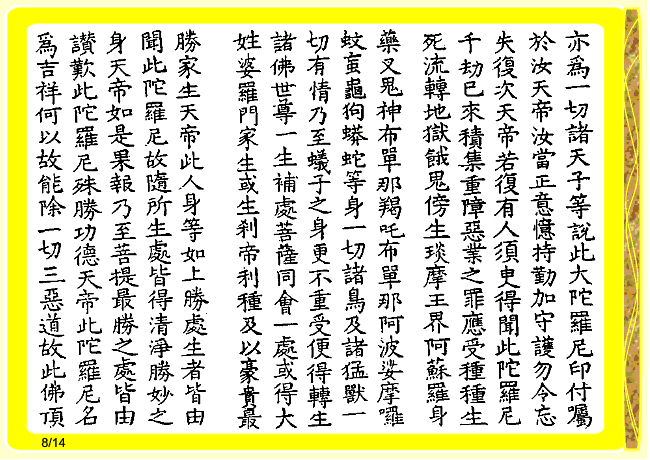 亦為一切諸天子等說此大陀羅尼印付囑
於汝天帝汝當正意憶持勤加守護勿令忘
失復次天帝若復有人須臾得聞此陀羅尼
千劫已來積集重障惡業之罪應受種種生
死流轉地獄餓鬼傍生琰摩王界阿蘇羅身
藥叉鬼神布單那羯吒布單那阿波娑摩囉
蚊虻龜狗蟒蛇等身一切諸鳥及諸猛獸一
切有情乃至蟻子之身更不重受便得轉生
諸佛世尊一生補處菩薩同會一處或得大
姓婆羅門家生或生剎帝利種及以豪貴最
勝家生天帝此人身等如上勝處生者皆由
聞此陀羅尼故隨所生處皆得清淨勝妙之
身天帝如是果報乃至菩提最勝之處皆由
讚歎此陀羅尼殊勝功德天帝此陀羅尼名
為吉祥何以故能除一切三惡道故此佛頂
8/14